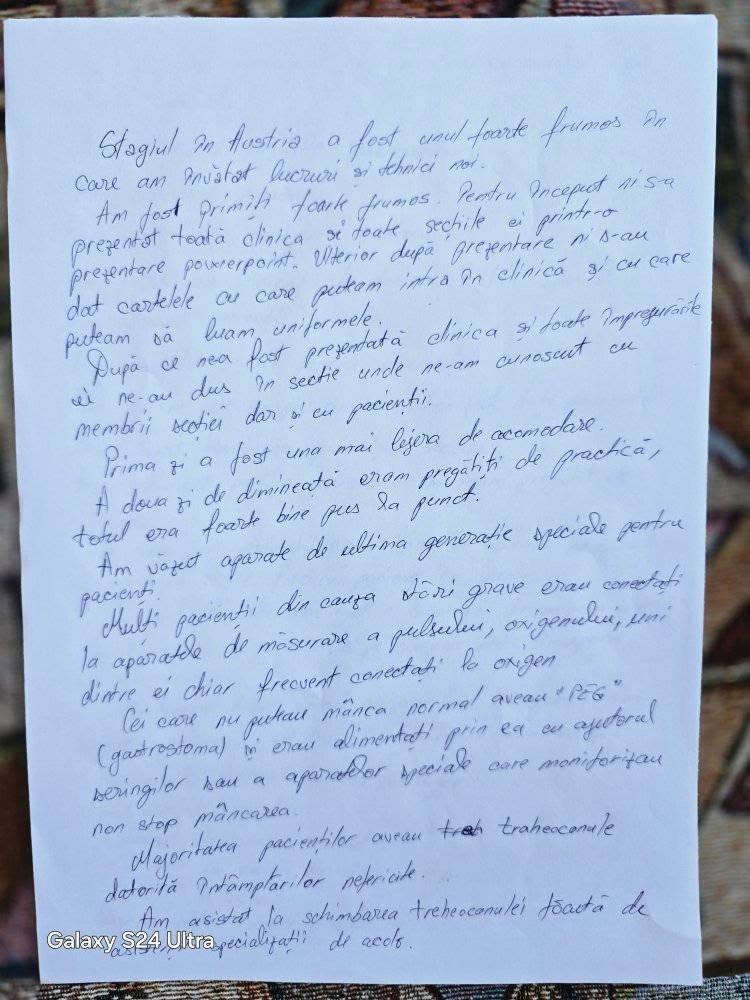 Stagiul în Austria a fost unul foarte frumos în
care am învățat lucruri și tehnici noi.
Am fost primiți foarte frumos. Pentru început ni s-a
prezentat toată clinica și toate secțiile ei printr-o
prezentare powerpoint. Ulterior după prezentare ni s-au
dat cartelele cu care puteam intra în clinică și cu care
puteam să luam uniformele.
După ce nea fost prezentată clinica și toate împregurările
ei ne-au dus în secție unde ne-am cunoscut cu
membrii secției dar și cu pacienții.
Prima zi a fost una mai lejera de acomodare.
A doua zi de dimineață eram pregătiți de practică,
totul era foarte bine pus la punct.
Am văzut aparate de ultima generație speciale pentru
pacienți.
Mulți pacienții din cauza stări grave erau conectați
la aparatele de măsurare a pulsului, oxigenului, uni
dintre ei chiar frecvent conectați la oxigen
Cei care nu puteau mânca normal aveau "PEG"
(gastrostoma) și erau alimentați prin ea cu ajutorul
seringilor sau a aparatelor speciale care monitorizau
non stop mâncarea.
Majoritatea pacienților aveau traheocanule
datorită întâmplărilor nefericite.
Am asistat la schimbarea treheocanulei făcută de
specializații de acolo.
Galaxy S24 Ultra